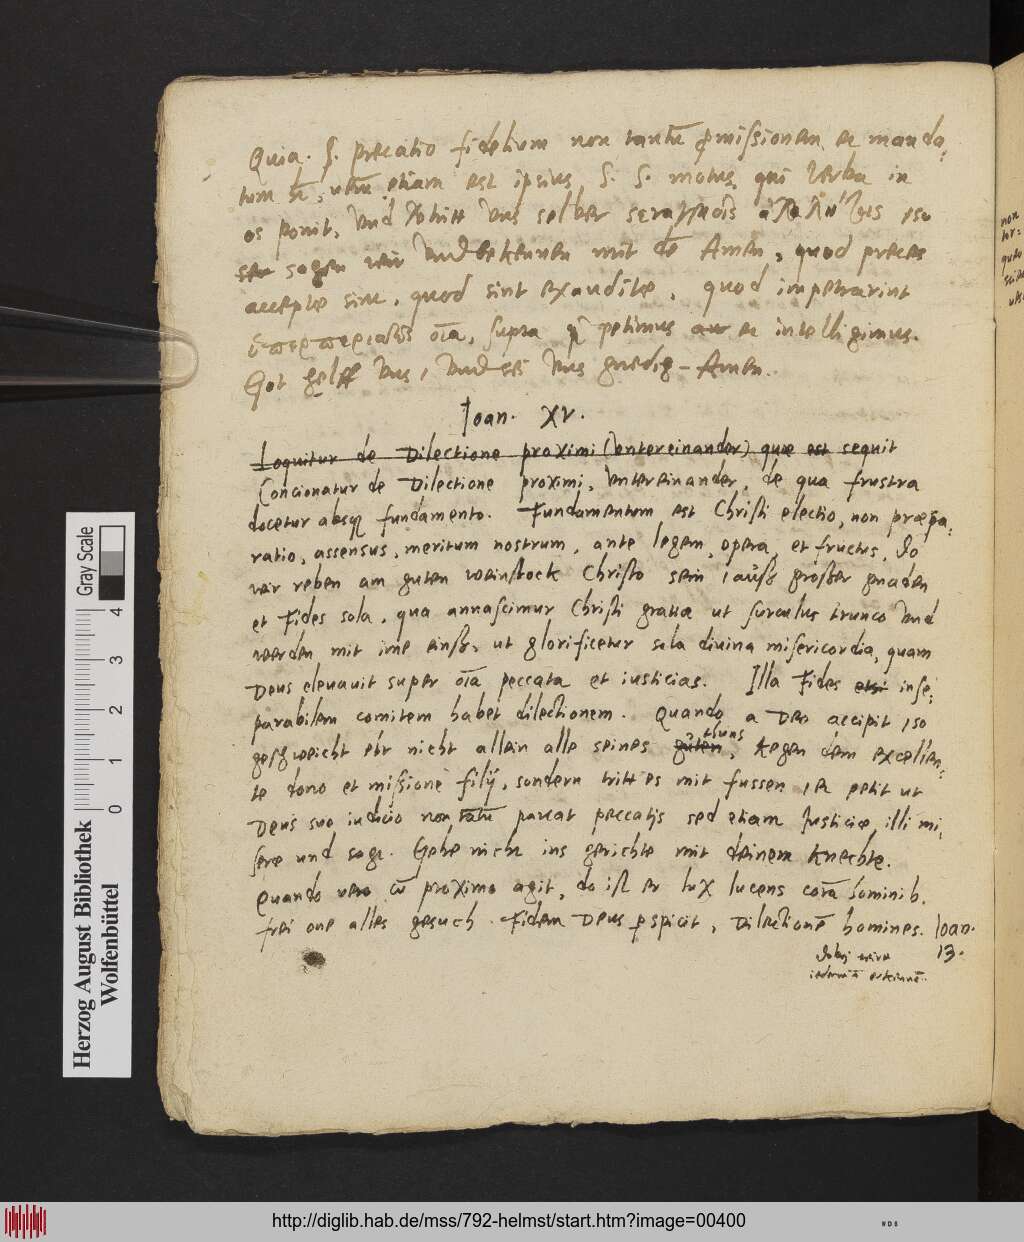 Quia. S. precatio fidelium non tantū ꝓmissionem et manda,
tum h̄, verū etiam est ipsius S. S. motus, qui verba in
os ponit, vnd selber iso
sagen wir vnd bekennen mit dē Amen, quod preces
acceptæ sint, quod sint exauditæ, quod impetrarint
oīa, supra petimus aut et intelligimus.
Got helff vns, vnd sei vns gnedig - Amen.
Ioan. XV.
Loquitur de Dilectione proximi (vntereinander) quæ est sequit
Concionatur de Dilectione proximi, vntereinander, de qua frustra
docetur absq fundamento. Fundamentum est Christi electio, non præpa,
ratio, assensus, meritum nostrum, ante legem, opera, et fructus, do
wir reben am guten weinstock Christo sein, auß großer gnaden
et Fides sola, qua annascimur Christi gratia ut surculus trunco vnd
werden mit ime einß, ut glorificetur sola divina misericordia, quam
Deus elevavit super oīa peccata et iusticias. Illa Fides etsi inse,
parabilem comitem habet dilectionem. Quando a Deo accipit, so
geschweicht ehr nicht allein alle seines guten thuns, kegen dem excellen,
te dono et missione filij, sondern tritt es mit fussen, et petit ut
Deus suo iudicio non tātū parcat peccatis sed etiam Iusticiæ, illi mi,
seræ und sagt. Gehe nicht ins gerichte mit deinem knechte.
Quando vero cū proximo agit, do ist er lux lucens corā hominib.
frei one alles gesuch. Fidem Deus ꝑspicit, Dilectionē homines. Ioan.
13.
Dobej wirt
iederman erkennē.
non
quo
Herzog August Bibliothek
Wolfenbüttel
Gray Scale
0 1 2 3 4
http://diglib.hab.de/mss/792-helmst/start.htm?image=00400